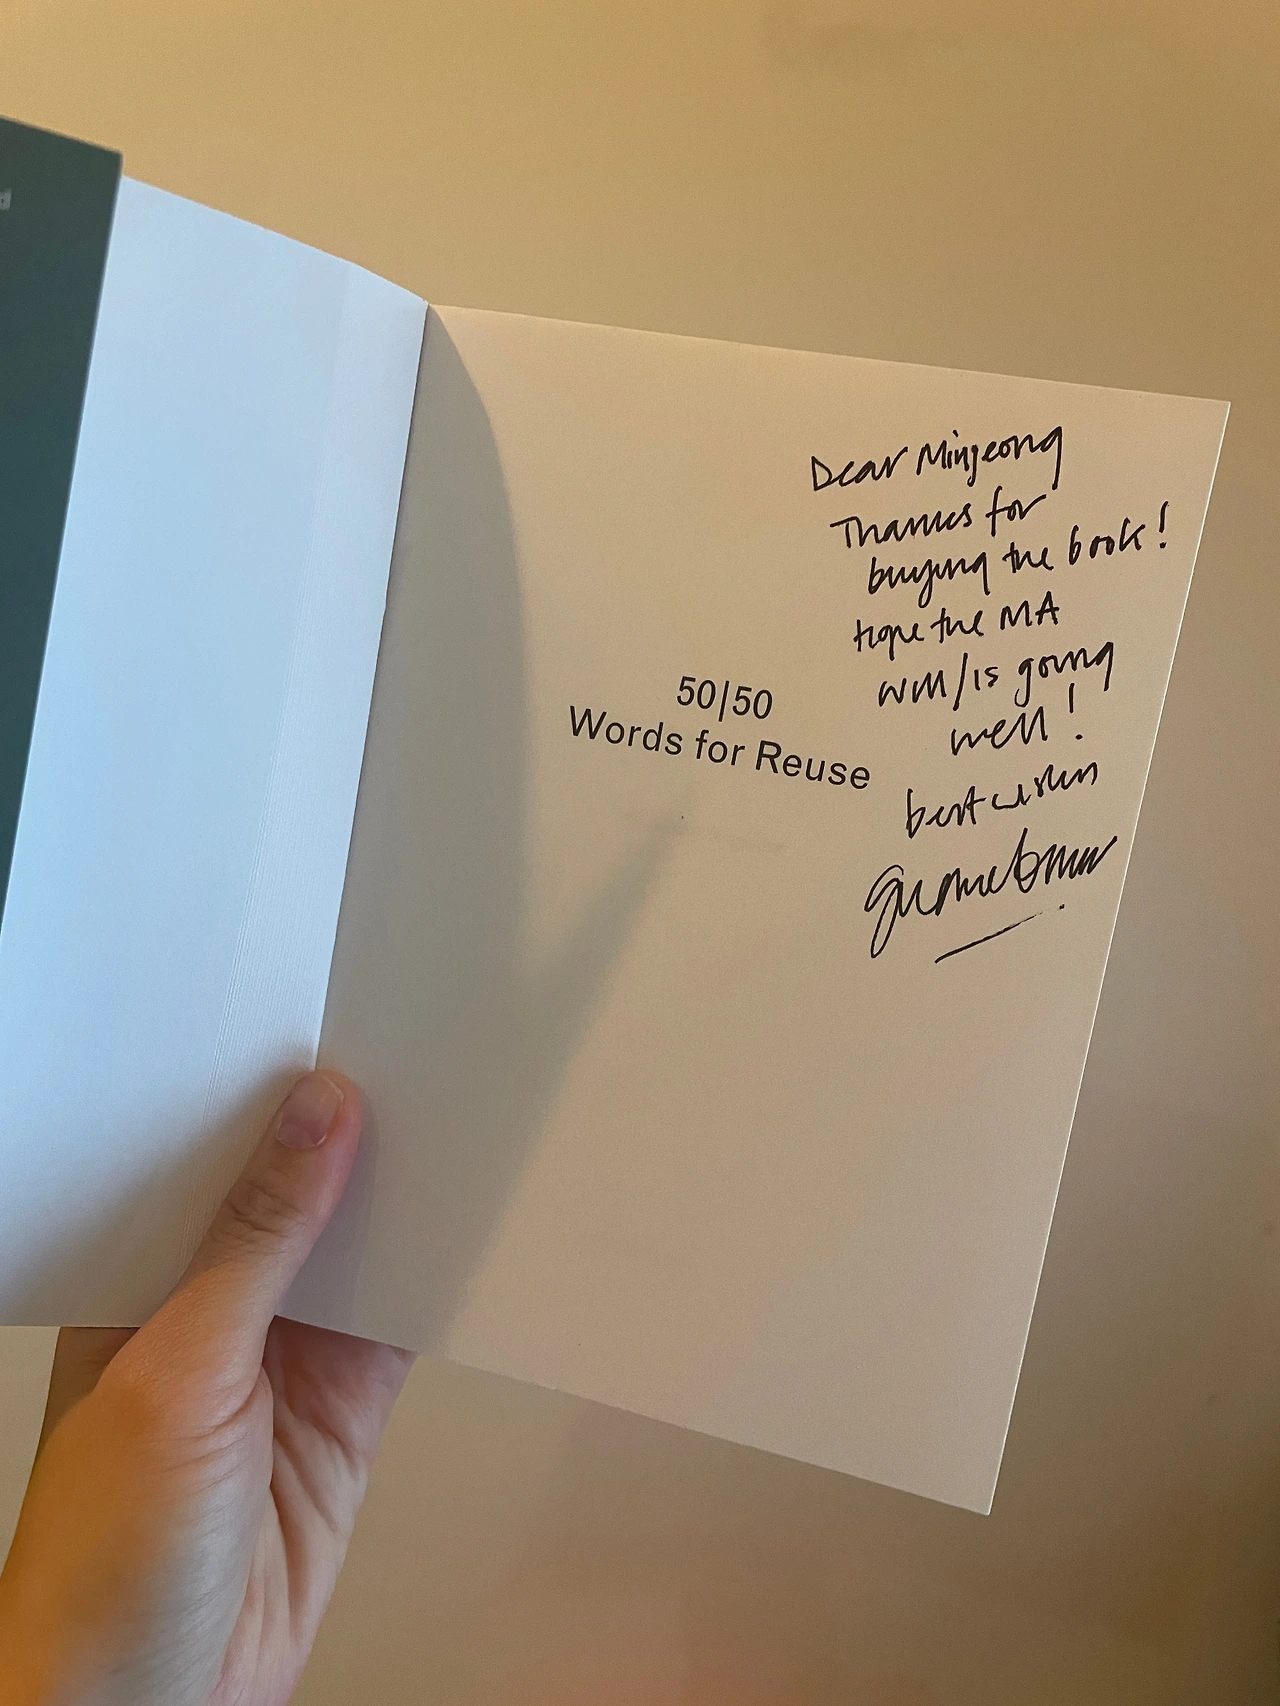 50|50
Words for Reuse
Dear Minjeong
Thanks for
buying the book!
hope the MA
will/is going
well!
best wishes